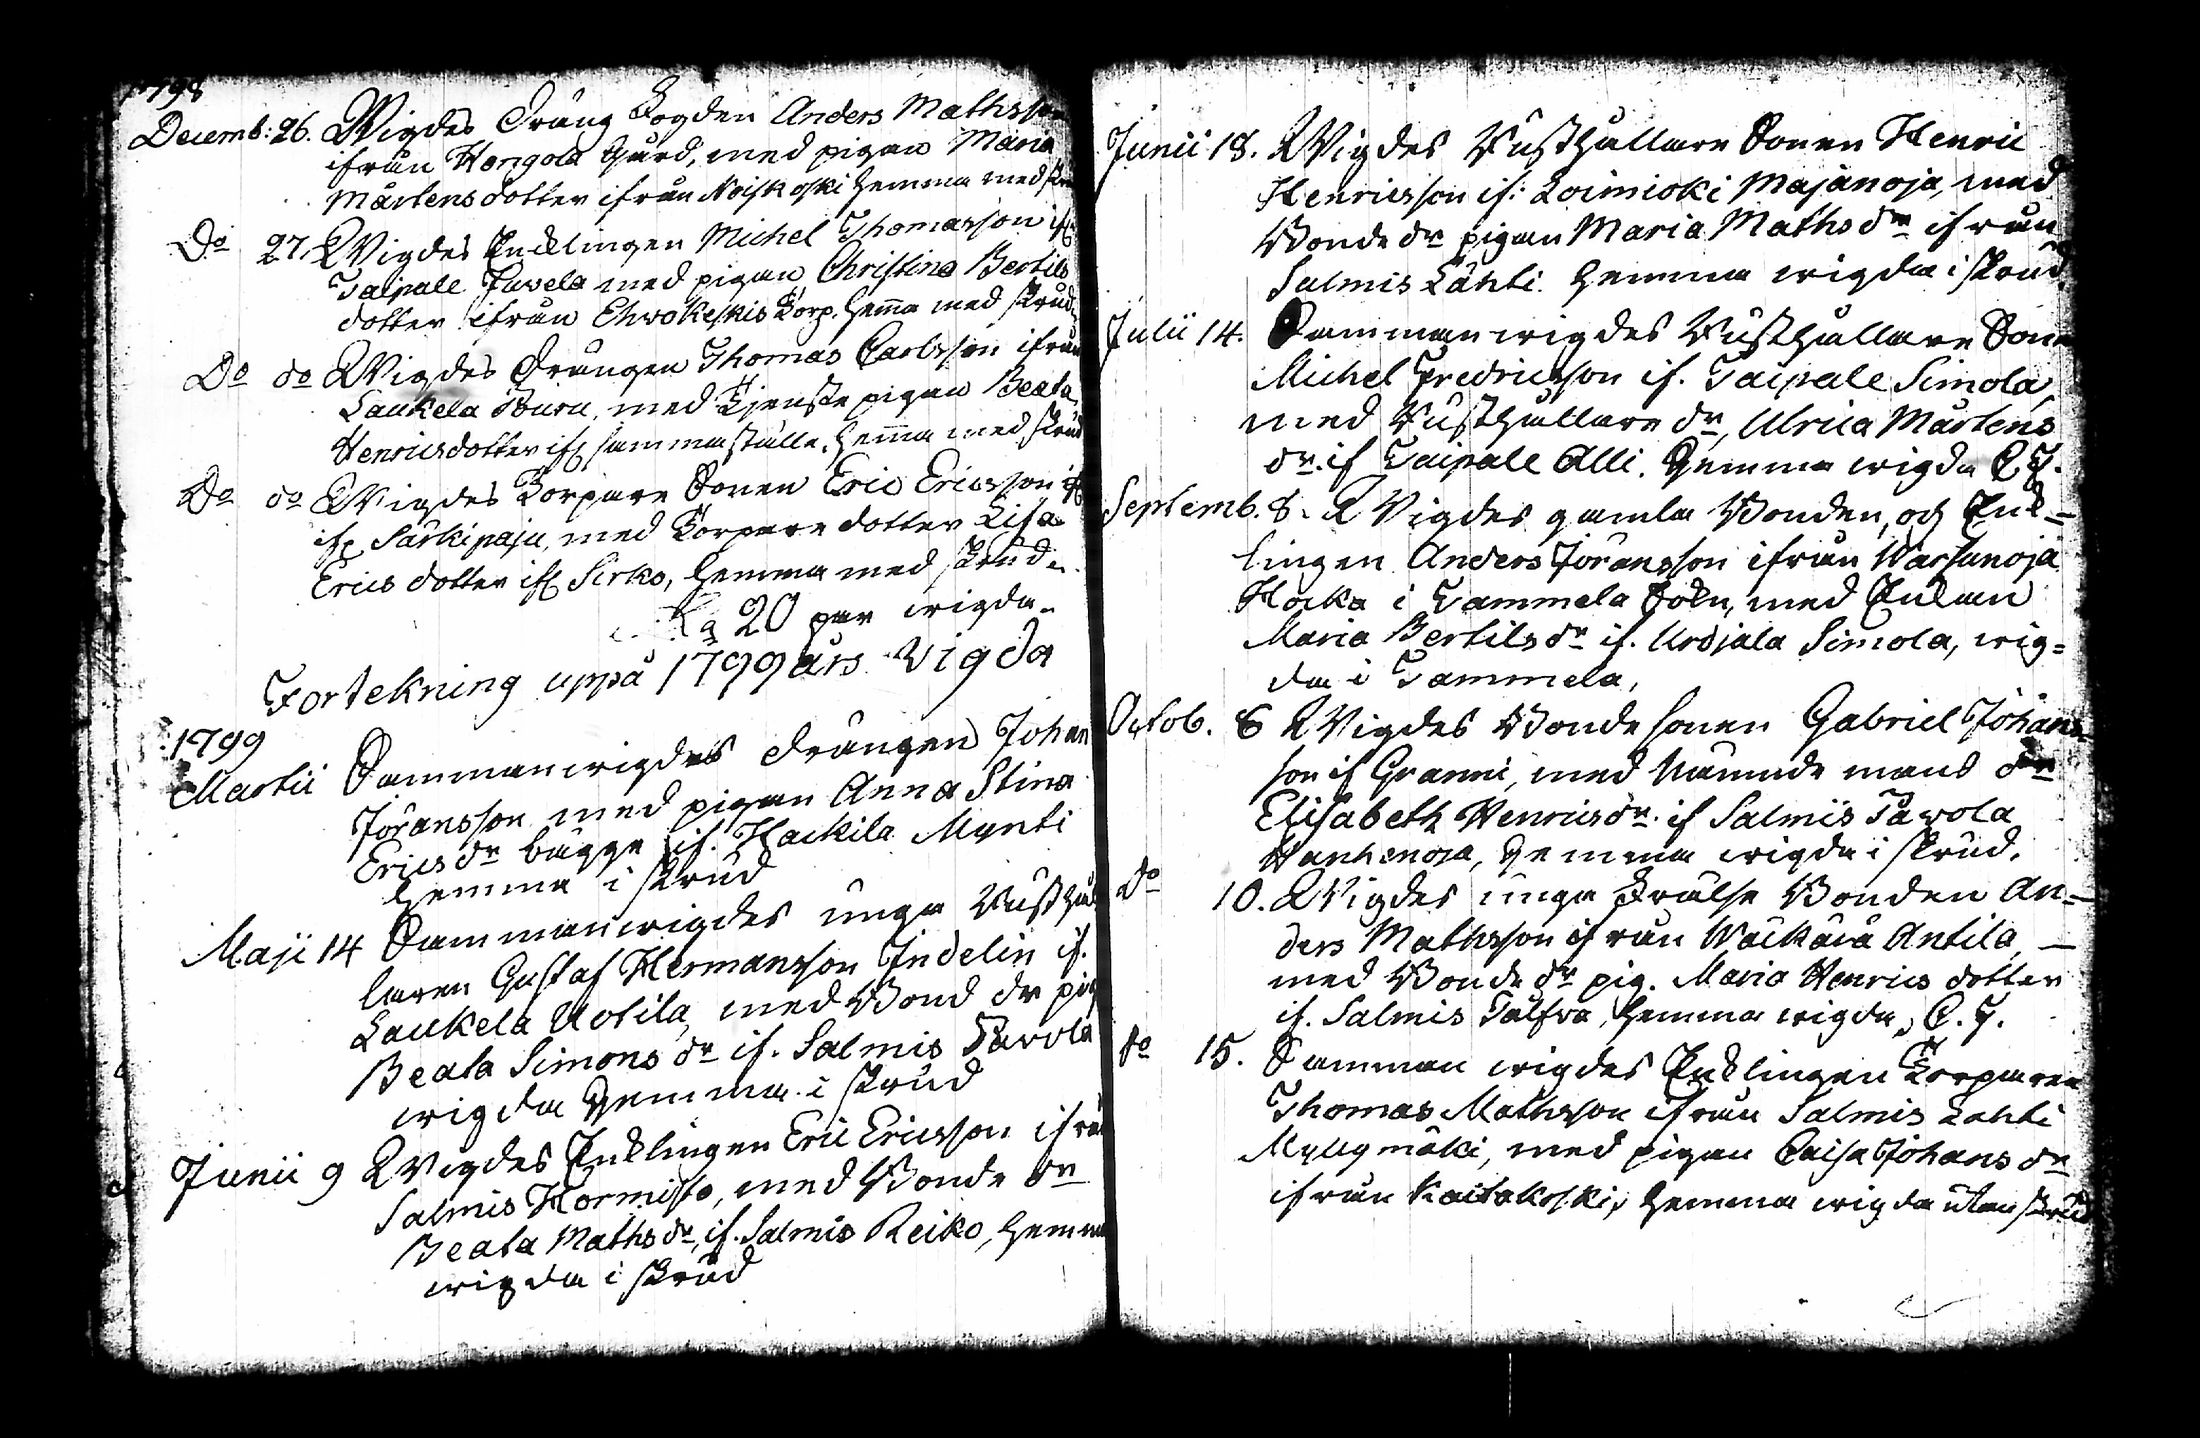 1798
Decemb: 26. Wigdes Dräng Fogden Anders Mathsson
ifrån Hongola Gård, med pigan Maria
Mårtens dotter ifrån Noiskoski hemma med
Do 27. Wigdes Encklingen Michel Thomasson if
Taipale Juvela med pigan Christina Bertils
dotter ifrån Torp. hema med skrud
Do do Wigdes Drängen Thomas Carlsson ifrån
Laukela Buru, med Tjenste pigan Beata
Henricsdotter if samma ställe, hema med skrud
Do do Wigdes Torpare Sonen Eric Ericsson if
if Särkipaju, med Torpare dotter Lisa
Erics dotter if Sirko, hemma med skrud
20 par wigda
Fortekning uppå 1799 års Vigda
1799
Martii Sammanwigdes drängen Johan
Jöransson med pigan Anna Stina
Ericsdr bägge if. Hackila Mynti
hemma i skrud
Maji 14 Sammanwigdes unga Rusthål
laren Gustaf Hermansson Indelin if.
Laukela Uotila, med Bond dr pig
Beata Simons dr if. Salmis Tavola
wigda hemma i skrud
Junii 9 Wigdes Encklingen Eric Ericsson ifrån
Salmis Kormisto, med Bonde dr
Beata Maths dr, if. Salmis Reiko, hemma
wigda i skrud
Junii 18. Wigdes Rusthållare Sonen Henric
Henricsson if: Loimioki Majanoja, med
Bonde dr pigan Maria Maths dr ifrån
Salmis Lahti. hemma wigda i skrud.
Julii 14. Sammanwigdes Rusthållare Sonen
Michel Fredricsson if. Taipale Simola,
med Rusthållare dr, Ulrica Mårtens
dr. if Taipale Alli. hemma wigda
Septemb. 8. Wigdes gamla Bonden, och Enk=
lingen Anders Jöransson ifrån Warsanoja
i Tammela Sokn, med Enkan
Maria Bertils dr if. Urdjala Simola, wig=
da i Tammela,
Octob. 6 Wigdes Bonde sonen Gabriel Johans
son if Granni, med Nämnde mans dr
Elisabeth Henricsdr. if Salmis Tavola
Wanhenoja, hemma wigda i skrud.
Do 10. Wigdes unga Frälse Bonden An=
ders Mathsson ifrån Antila
med Bonde dr pig. Maria Henrics dotter
if. Salmis hemma wigda,
do 15. Samman wigdes Encklingen Torparen
Thomas Mathsson ifrån Salmis Lahti
Myllymäki, med pigan Caisa Johans dr
ifrån Kaitakoski, hemma wigda utan skrud